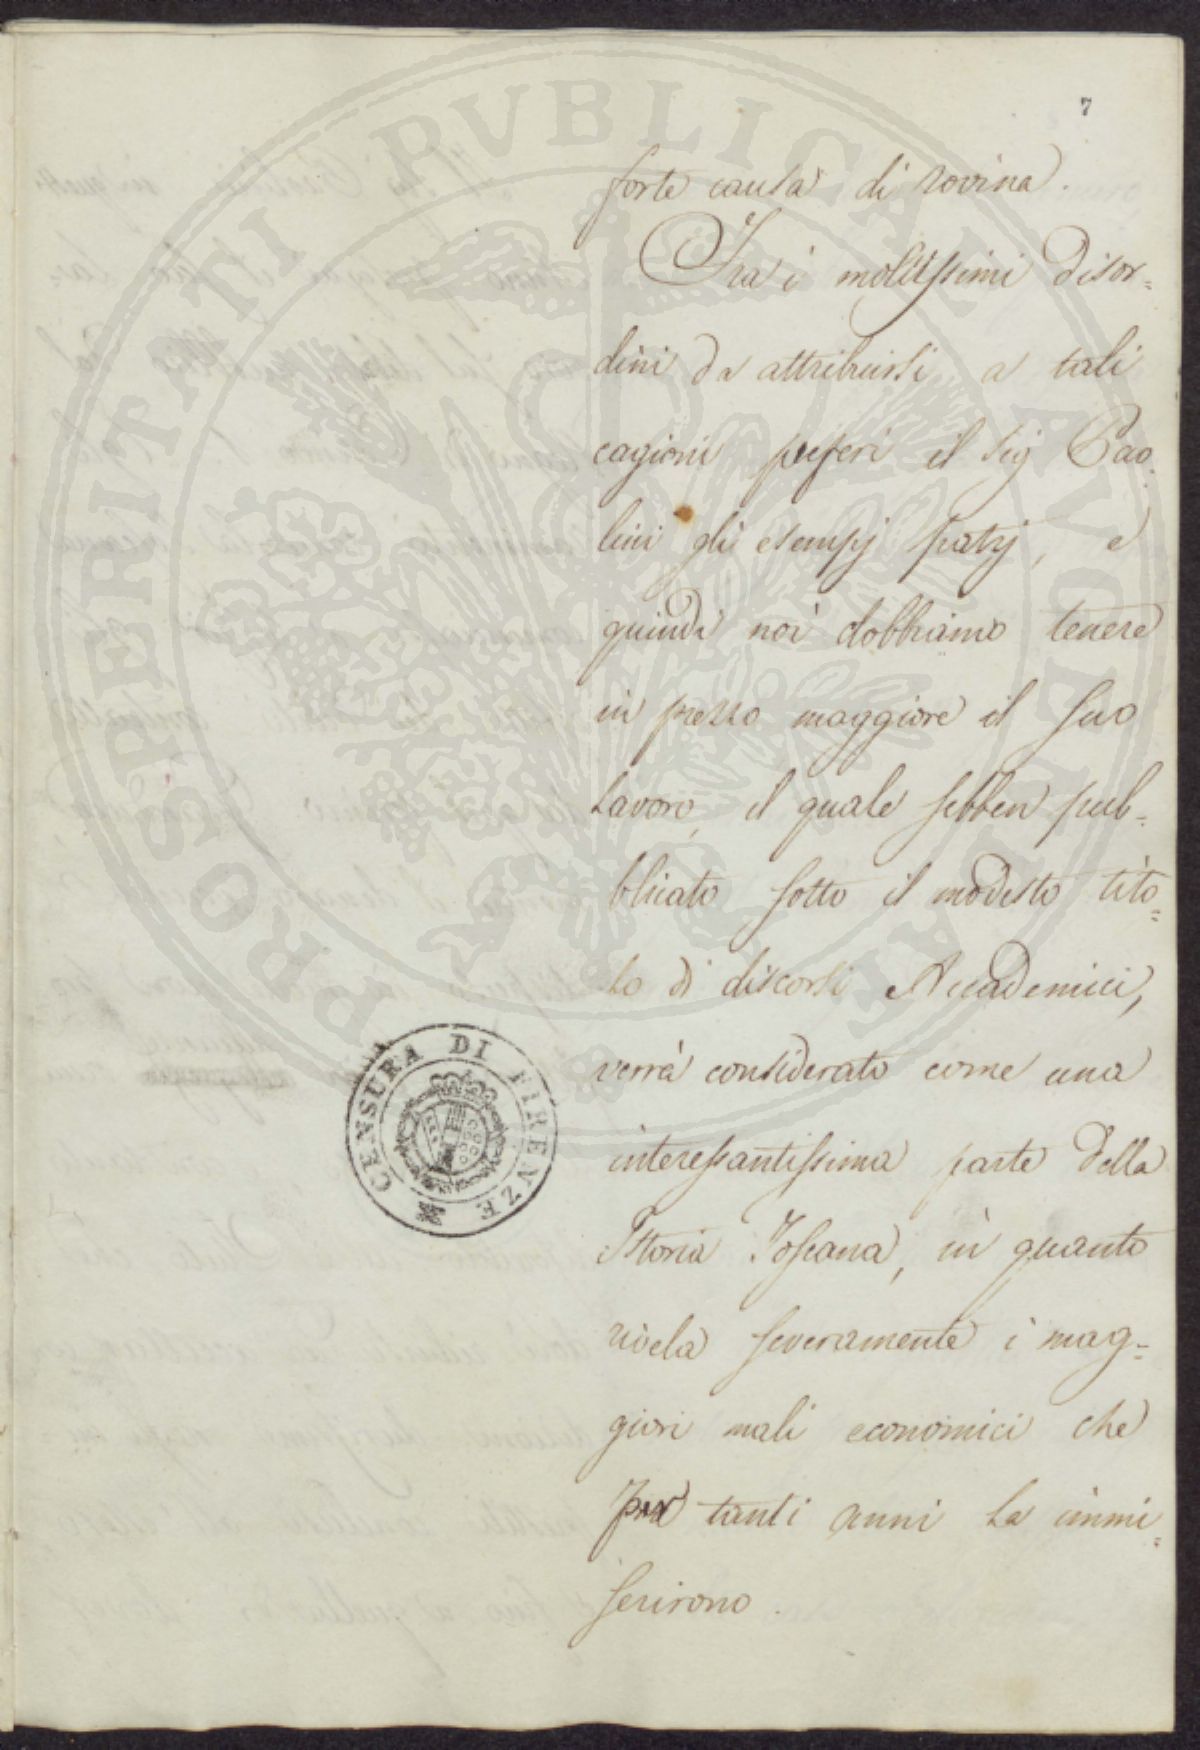 7
forte causa di rovina.
Fra i moltissimi disor=
dini da attribuirsi a tali
cagioni preferì il Sig Pao=
lini gli esempj patrj, e
quindi noi dobbiamo tenere
in prezzo maggiore il suo
lavoro, il quale sebben pub=
blicato sotto il modesto tito=
lo di discorsi Accademici,
verrà considerato come una
interessantissima parte della
Storia Toscana, in quanto
rivela severamente i mag=
giori mali economici che
per tanti anni la immi=
serirono.
CENSURA DI FIRENZE
PROSPERITATI PVBLICAE AVGENDAE